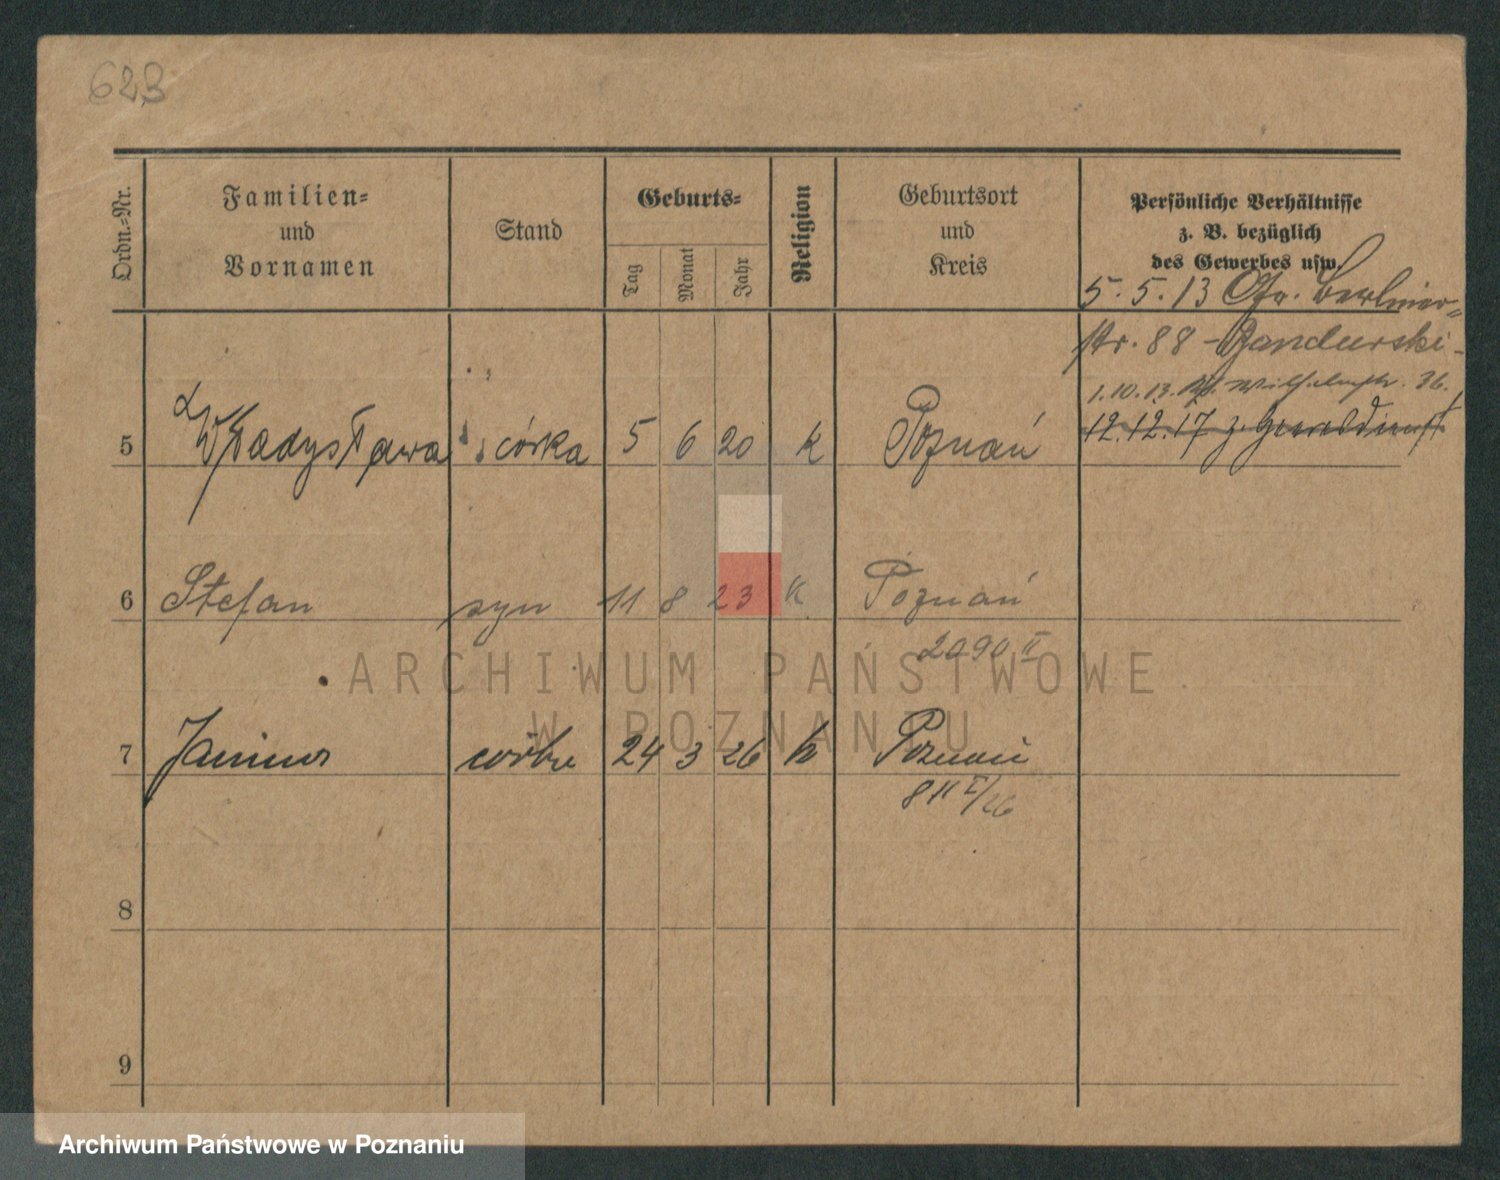 623
Ordn.-Nr.
Familien-
und
Vornamen
Stand
Geburts-
Tag
Monat
Jahr
Religion
Geburtsort
und
Kreis
Persönliche Verhältnisse
z. B. bezüglich
des Gewerbes usw.
5. 5. 13 Berliner=
str. 88 - Gandurski -
1. 10. 13. Wilhelmstr. 36.
12. 12. 17 z.
5 Władysława córka 5 6 20 k Poznań
6 Stefan syn 11 8 23 k Poznań
2090 II
7 Janina córka 24 3 26 k Poznań
811 I/26
8
9
ARCHIWUM PAŃSTWOWE
W POZNANIU
Archiwum Państwowe w Poznaniu